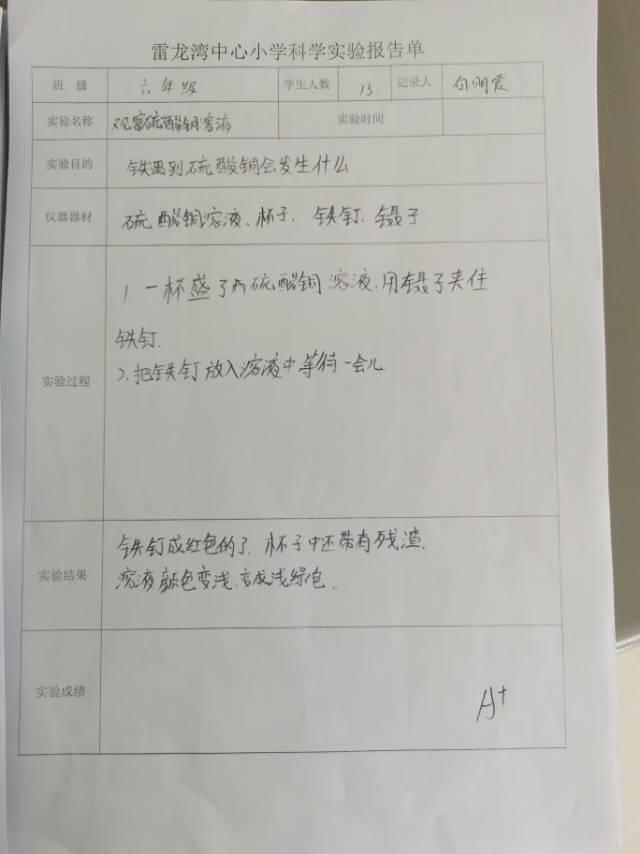 雷龙湾中心小学科学实验报告单
班 级 六年级 学生人数 13 记录人 白明霞
实验名称 观察硫酸铜溶液 实验时间
实验目的 铁遇到硫酸铜会发生什么
仪器器材 硫酸铜溶液、杯子、铁钉、镊子
实验过程
1. 一杯盛了硫酸铜溶液,用镊子夹住
铁钉.
2. 把铁钉放入溶液中等待一会儿
实验结果
铁钉成红色的了,杯子中还带有残渣.
溶液颜色变浅,变成浅绿色。
实验成绩
A+